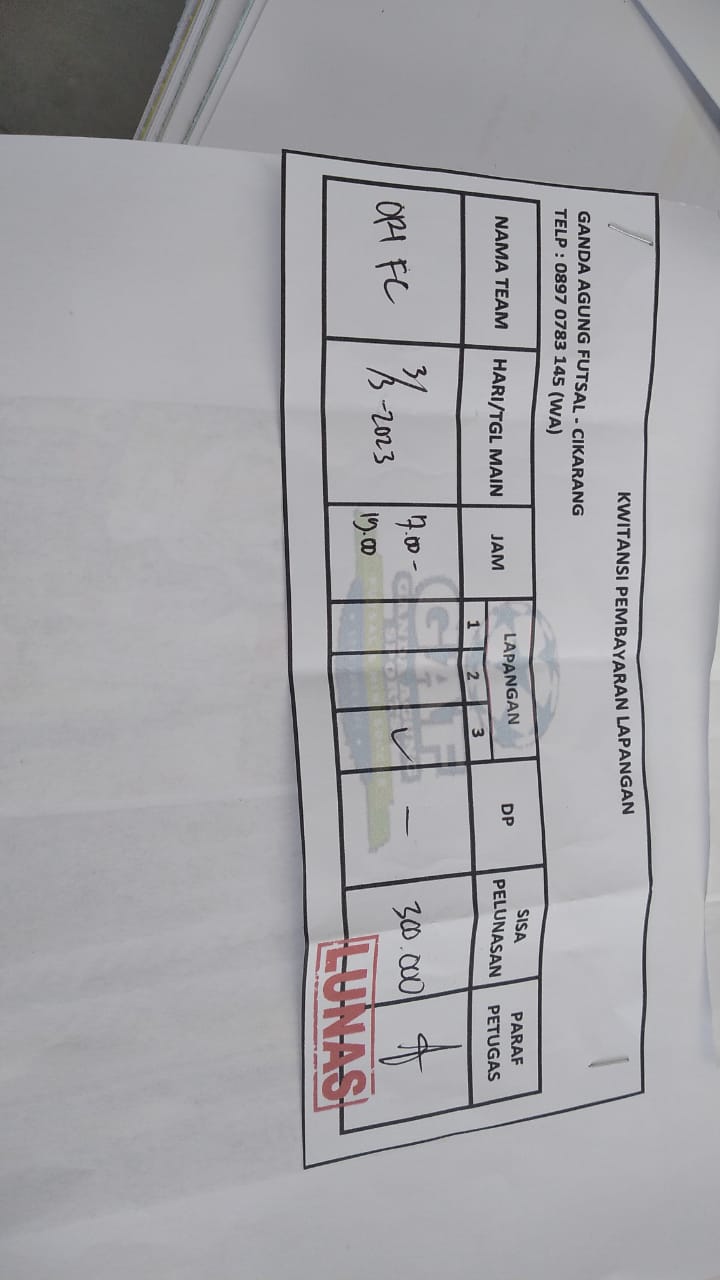 KWITANSI PEMBAYARAN LAPANGAN
GANDA AGUNG FUTSAL - CIKARANG
TELP : 0897 0783 145 (WA)
NAMA TEAM HARI/TGL MAIN JAM LAPANGAN DP SISA PELUNASAN PARAF PETUGAS
1 2 3
OPI FC 31/3-2023 17.00 - ✓ - 300.000
19.00
LUNAS
GAF